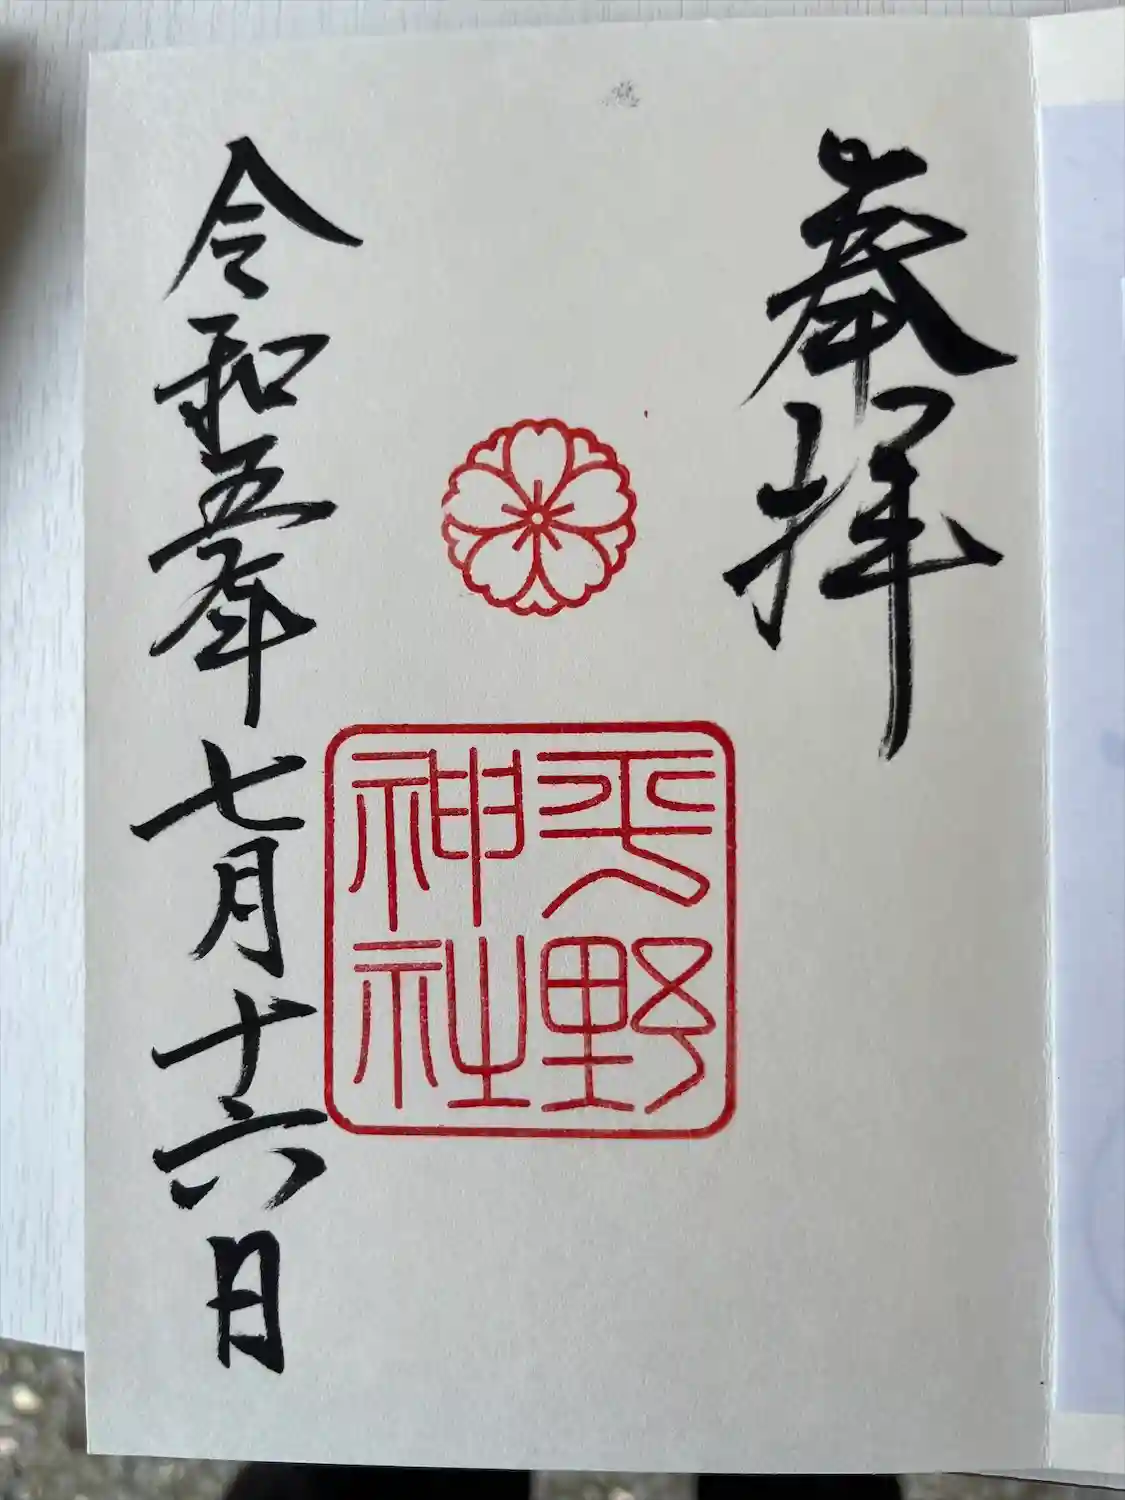 奉拝
平野
神社
令和五年七月十六日